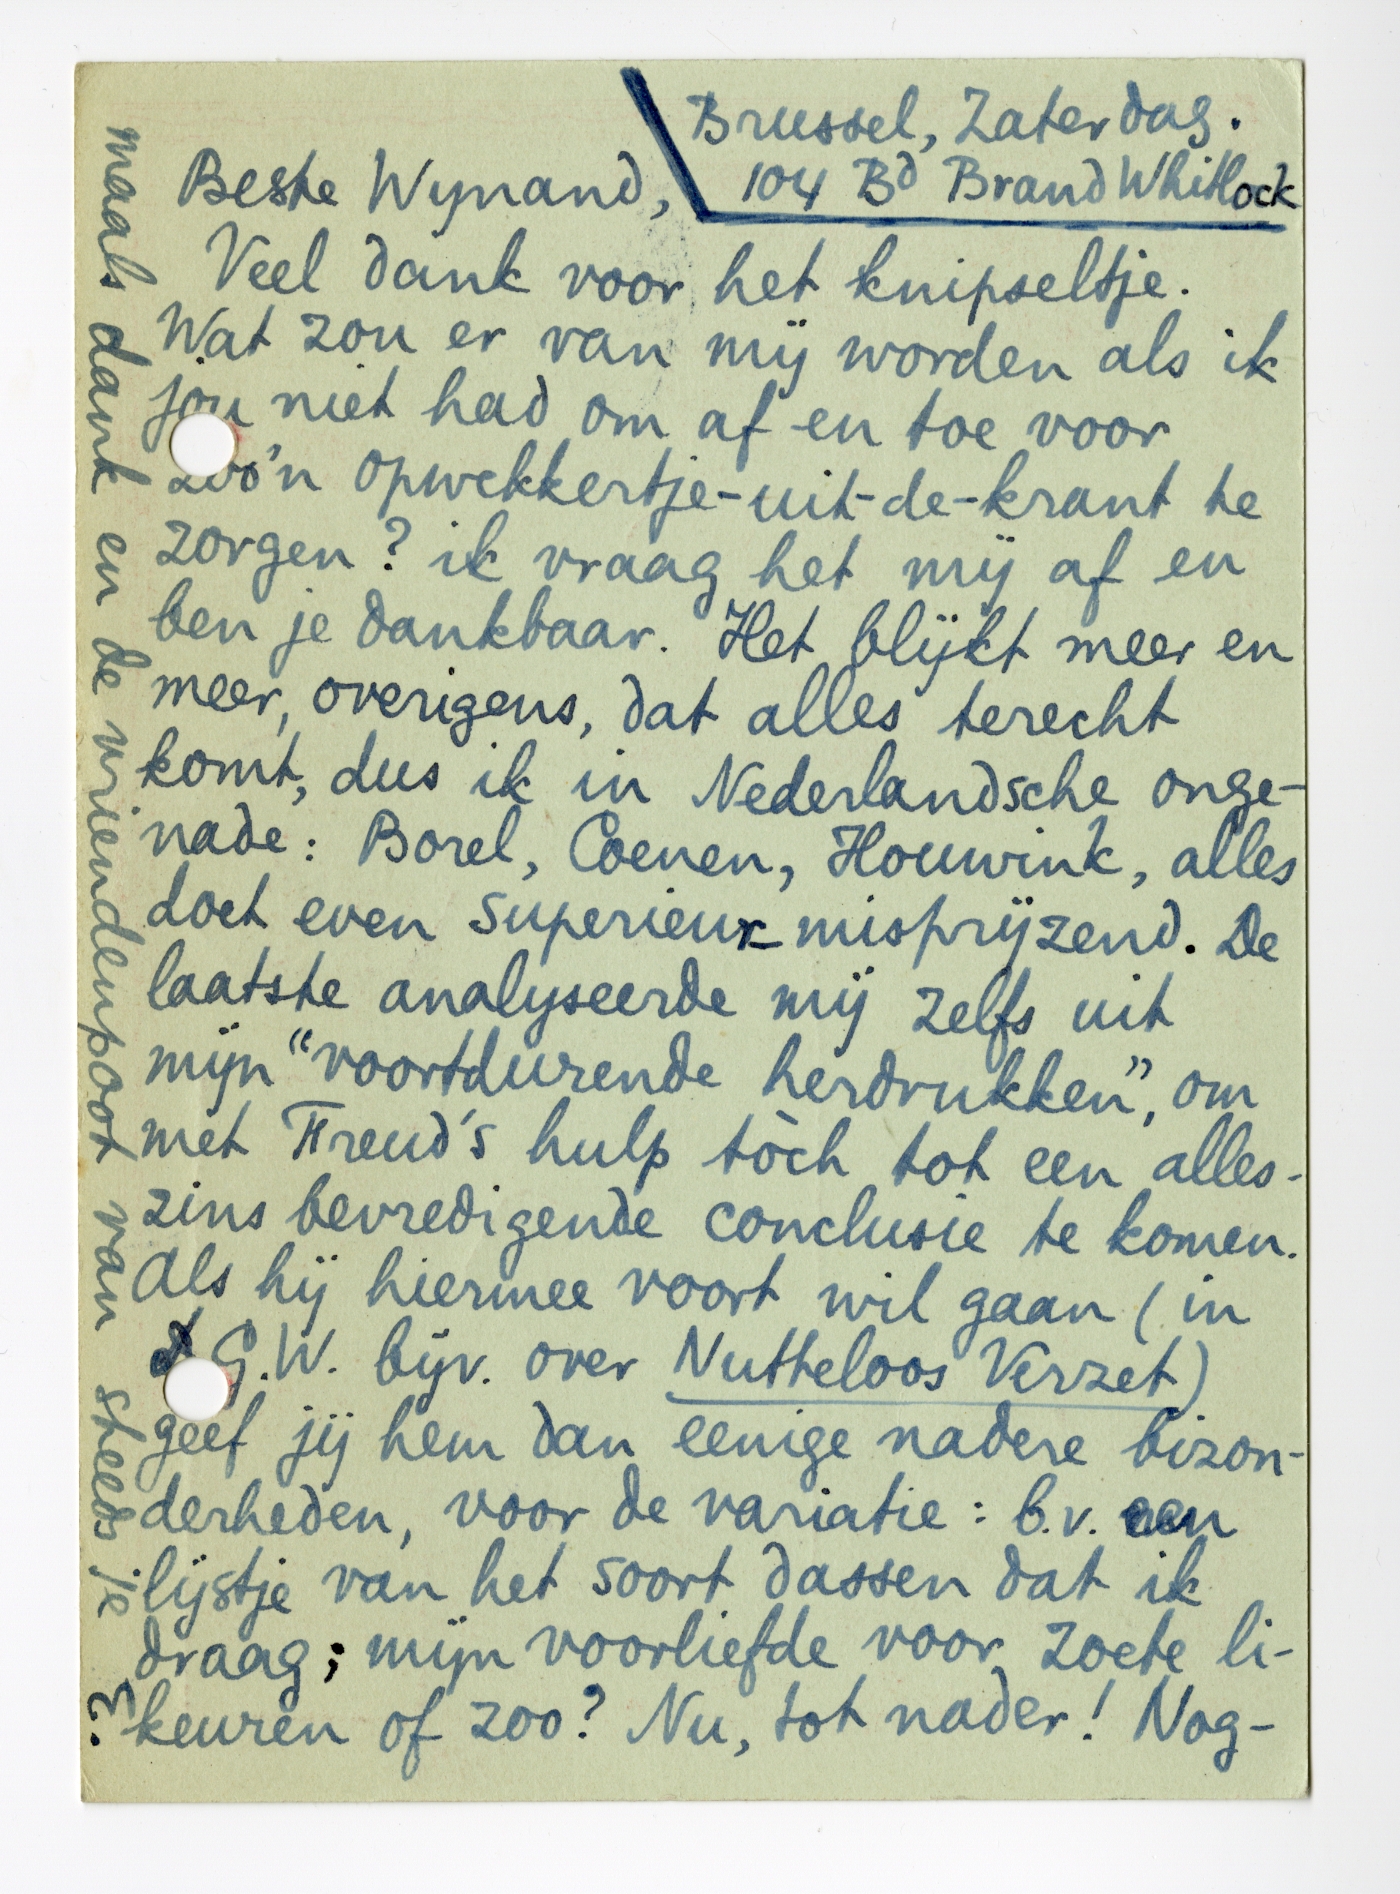 Brussel, Zaterdag.
104 Bd Brand Whitlock
Beste Wynand,
Veel dank voor het knipseltje.
Wat zou er van mij worden als ik
jou niet had om af en toe voor
zoo'n opwekkertje-uit-de-krant te
zorgen? ik vraag het mij af en
ben je dankbaar. Het blijkt meer en
meer, overigens, dat alles terecht
komt, dus ik in Nederlandsche onge-
nade: Borel, Coenen, Houwink, alles
doet even superieur-misprijzend. De
laatste analyseerde mij zelfs uit
mijn "voortdurende herdrukken", om
met Freud's hulp tòch tot een alles-
zins bevredigende conclusie te komen.
Als hij hiermee voort wil gaan (in
G.W. bijv. over Nutteloos Verzet)
geef jij hem dan eenige nadere bizon-
derheden, voor de variatie: b.v. een
lijstje van het soort dassen dat ik
draag; mijn voorliefde voor zoete li-
keuren of zoo? Nu, tot nader! Nog-
maals dank en de vriendenpoot van steeds je
E.